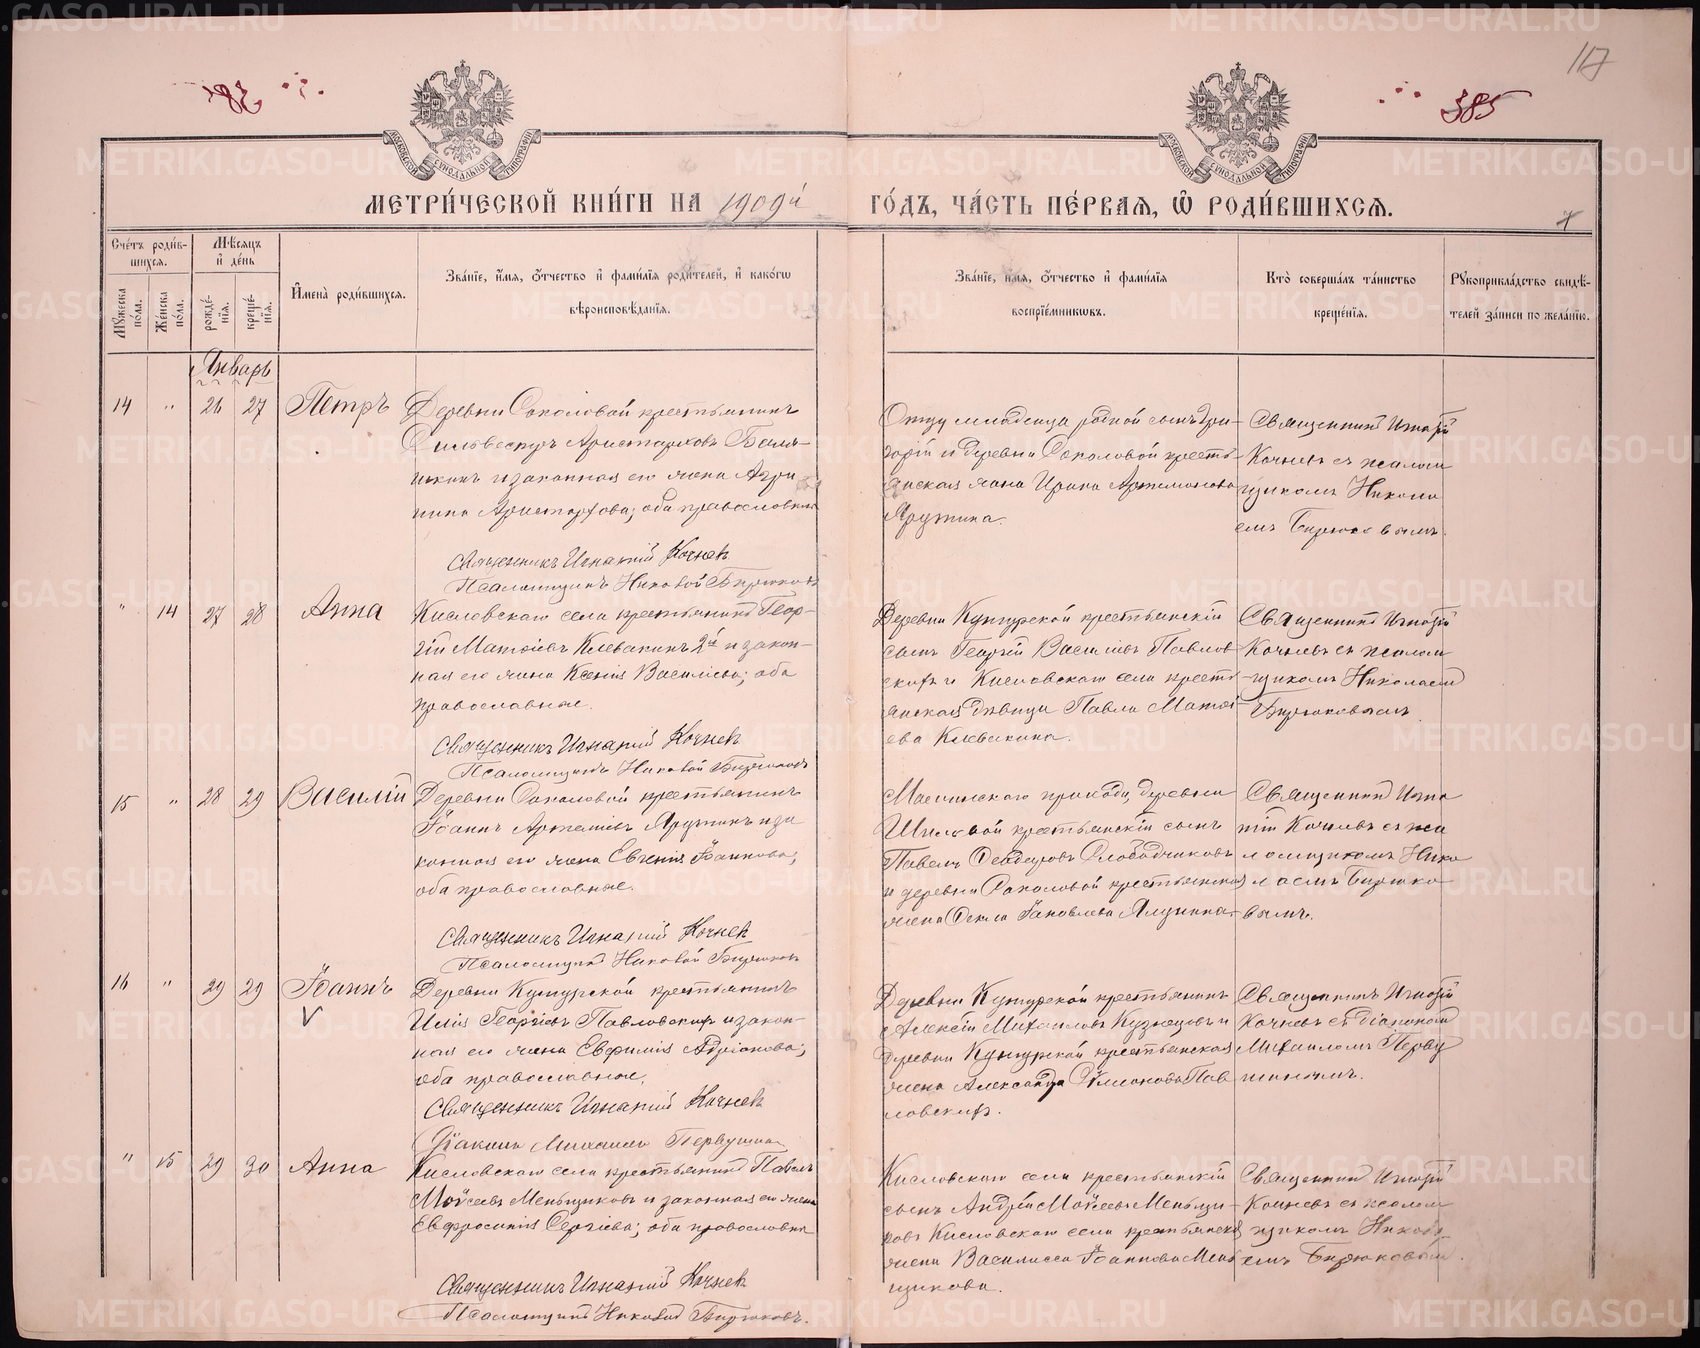 385
117
МОСКОВСКОЙ СѴНОДАЛЬНОЙ ТИПОГРАФІИ
МОСКОВСКОЙ СѴНОДАЛЬНОЙ ТИПОГРАФІИ
МЕТРИ́ЧЕСКОЙ КНИ́ГИ НА 1909й ГО́ДЪ, ЧА́СТЬ ПЕ́РВАЯ, Ѽ РОДИ́ВШИХСЯ.
Сче́тъ роди́в-
шихся.
Му́жеска по́ла.
Же́нска по́ла.
Мѣ́сяцъ
и҆ де́нь
рожде́-
нїя.
креще́-
нїя.
И҆мена̀ роди́вшихся.
Зва́нїе, и҆́мя, ѻ҆́тчество и҆ фами́лїя роди́телей, и҆ како́гѡ
вѣроисповѣ́данїя.
Зва́нїе, и҆́мя, ѻ҆́тчество и҆ фами́лїя
воспрїе́мникѡвъ.
Кто̀ соверша́лъ та́инство
креще́нїя.
Рꙋкоприкла́дство свидѣ́-
телей за́писи по жела́нїю.
Январь
14 " 26 27 Петръ
Деревни Соколовой крестьянинъ
Сильвестръ Аристарховъ Балы-
и законная его жена Агри
пина Аристархова; оба православны
Священникъ Игнатий Кочневъ
Псаломщикъ Николай Бирюковъ
Отцу младенца родной сынъ Гри-
горій и деревни Соколовой кресть-
янская жена Ирина Артемонова
Яружина.
Священникъ Игнатій
Кочневъ съ псалом
щикомъ Никола
емъ Бирюковымъ.
" 14 27 28 Анна
Кисловскаго села крестьянинъ Геор-
гій Матѳіевъ Клевакинъ 2й и закон-
ная его жена Ксенія Василіева; оба
православные.
Священникъ Игнатий Кочневъ
Псаломщикъ Николай Бирюковъ
Деревни Кунгурской крестьянскій
сынъ Георгій Василіевъ Павлов
скихъ и Кисловскаго села кресть-
янская дѣвица Павла Матѳі
ева Клевакина.
Священникъ Игнатій
Кочневъ съ псалом
щикомъ Николаемъ
Бирюковымъ.
15 " 28 29 Василій
Деревни Соколовой крестьянинъ
Іоаннъ Артеміевъ Яружинъ и за
конная его жена Евгенія Іоаннова;
оба православные.
Священникъ Игнатий Кочневъ
Псаломщикъ Николай Бирюковъ
прихода, деревни
крестьянскій сынъ
Павелъ Ѳеодоровъ Слободчиковъ
и деревни Соколовой крестьянская
жена Ѳекла Іаковлева
Священникъ Игна
тій Кочневъ съ пса
ломщикомъ Нико
лаемъ Бирюко
вымъ.
16 " 29 29 Іоаннъ
V
Деревни Кунгурской крестьянинъ
Илія Георгіевъ Павловскихъ и закон-
ная его жена Евфимія Адріанова;
оба православные.
Священникъ Игнатий Кочневъ
Діаконъ Михаилъ Первушинъ
Деревни Кунгурской крестьянинъ
Алексій Михаиловъ Кузнецовъ и
деревни Кунгурской крестьянская
жена Александра Филионова Пав
ловскихъ.
Священникъ Игнатій
Кочневъ съ діакономъ
Михаиломъ Перву
шинымъ.
" 15 29 30 Анна
Кисловскаго села крестьянинъ Павелъ
Моѵсеевъ Меньщиковъ и законная его жена
Евфросинія Сергіева; оба православны
Священникъ Игнатий Кочневъ
Псаломщикъ Николай Бирюковъ.
Кисловскаго села крестьянскій
сынъ Андрей Моѵсеевъ Меньщи-
ковъ Кисловскаго села крестьянская
жена Василисса Іоаннова Мень
щикова.
Священникъ Игнатій
Кочневъ съ псалом
щикомъ Никола
емъ Бирюковым.
METRIKI.GASO-URAL.RU